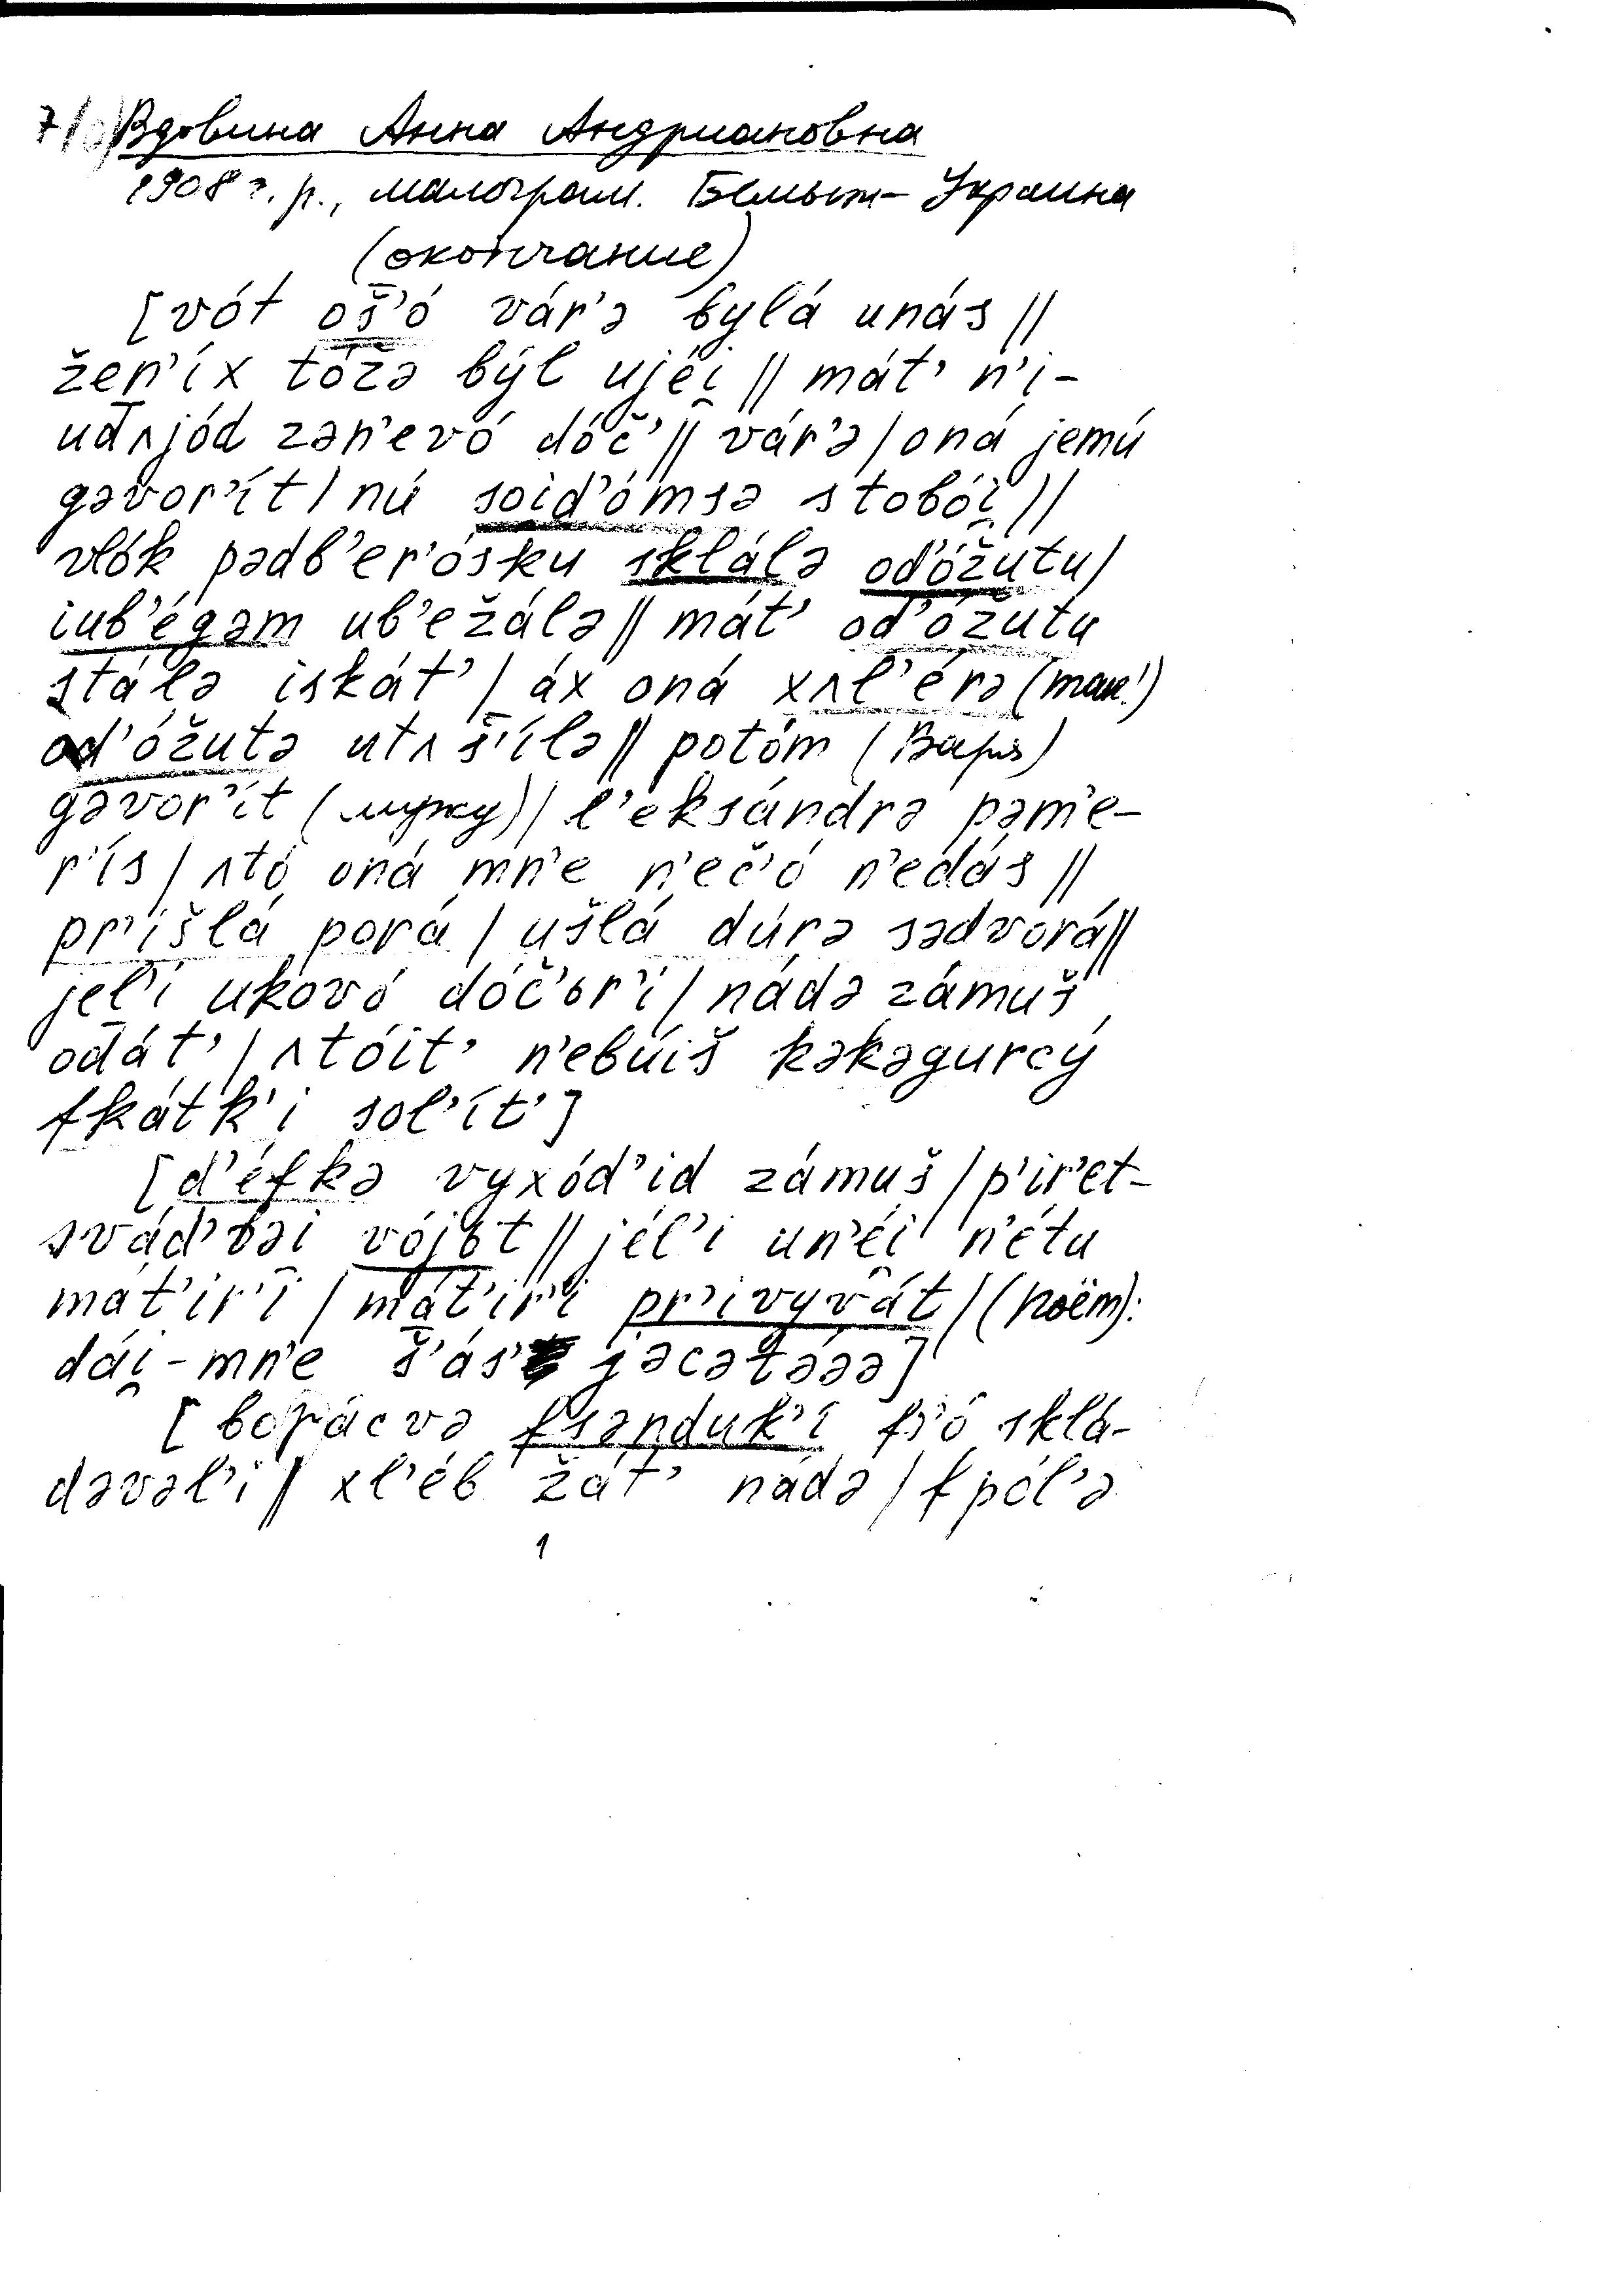 7/ Вдовина Анна Андриановна
1908 г. р., малограм. Бемыж- Украина
(окончание)
[vót oš̄’ó vár’ə bylá unás ||
žen’íx tóžə býl ujéi̯ || mát’ n’i-
ud̄ʌjód zən’evó dóč’ || vár’ə | oná jemú
gəvor’ít | nú soid’ómsə stobói̯ ||
vlók pədb’er’ósku sklálə od’óžutu |
iub’égəm ub’ežálə || mát’ od’óžutu
stálə iskát’ | áx oná xʌl’érə (так!)
od’óžutə utʌš̄’ílə || potóm (Варя)
gəvor’ít (мужу) | l’eksándrə pəm’e-
r’ís | ʌtó oná mn’e n’eč’ó n’edás ||
pr’išlá porá | ušlá dúrə sədvorá ||
jel’i ukovó dóč’ər’i | nádə zámuš
od̄át’ | ʌtóit’ n’ebúiš kəkəgurcý
fkátk’i sol’ít’]
[d’éfkə vyxód’id zámuš | p’ir’et-
svád’bəi vójət || jél’i un’éi̯ n’étu
mát’ir’i | mát’ir’i pr’ivyvát | (поём):
dái̯-mn’e š̄’ás’ jəcətəəə]
[bogácvə fsənduk’í fs’ó sklá-
dəvəl’i || xl’éb žát’ nádə | fpól’ə
1